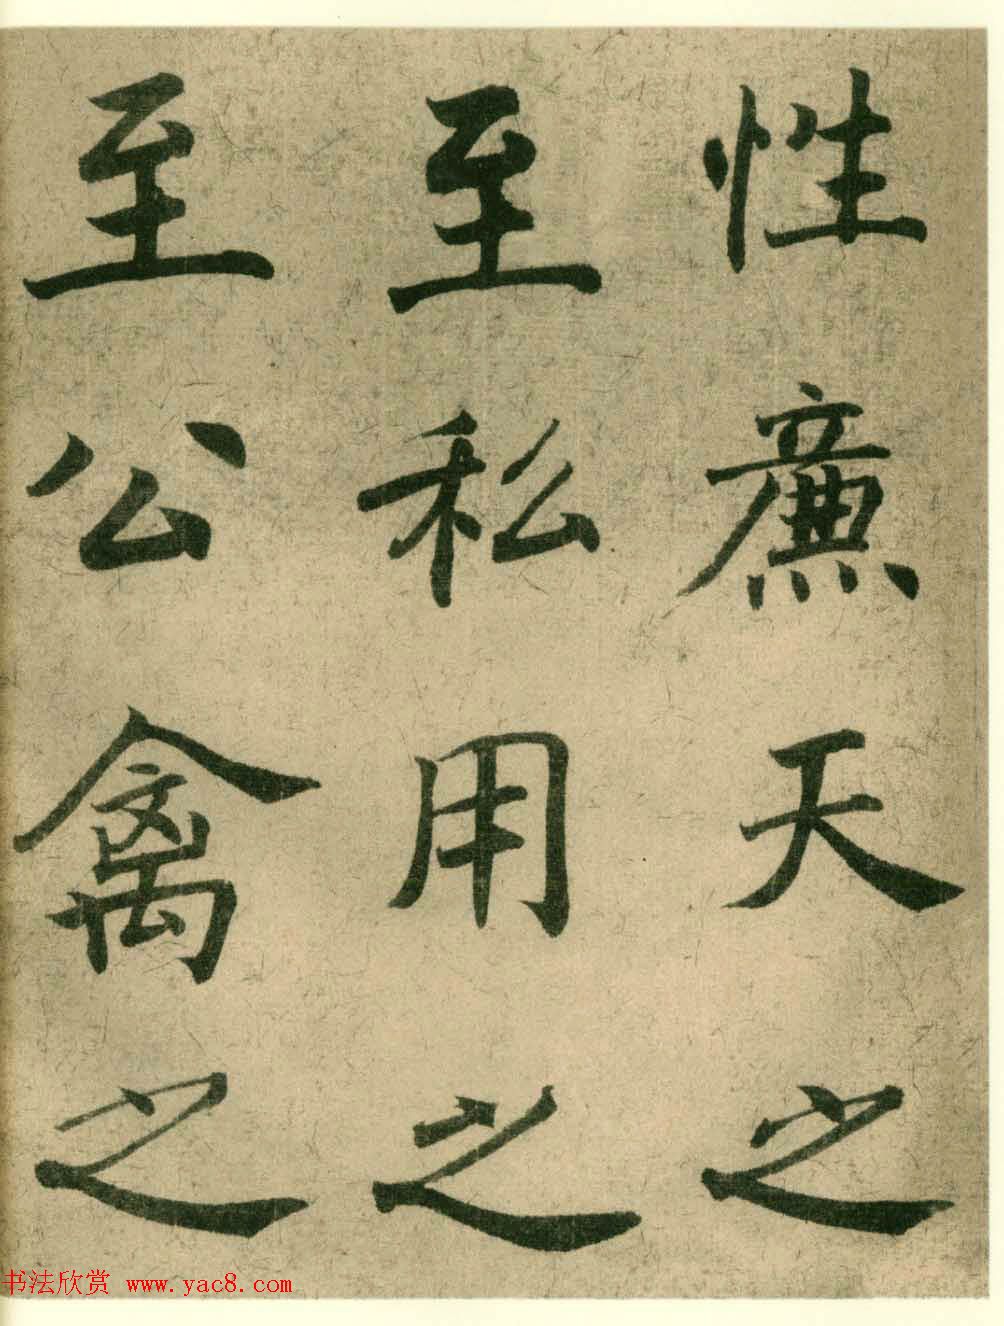 性廉天之
至私用之
至公禽之
书法欣赏 www.yac8.com